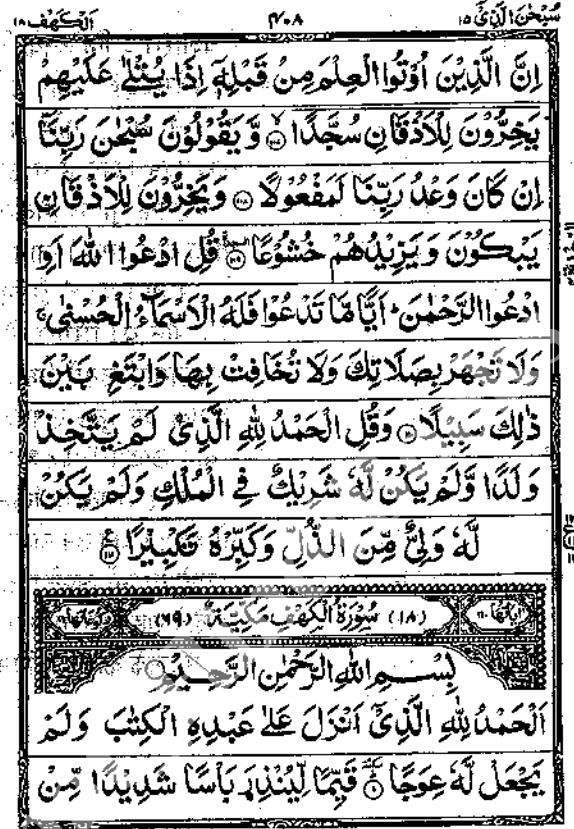 سُبْحٰنَ الَّذِیْۤ ۱۵ ۴۰۸ اَلْكَهْف ۱۸
اِنَّ الَّذِیْنَ اُوْتُوا الْعِلْمَ مِنْ قَبْلِهٖۤ اِذَا یُتْلٰی عَلَیْهِمْ
یَخِرُّوْنَ لِلْاَذْقَانِ سُجَّدًا ۙ﴿۱۰۷﴾ وَّ یَقُوْلُوْنَ سُبْحٰنَ رَبِّنَاۤ
اِنْ كَانَ وَعْدُ رَبِّنَا لَمَفْعُوْلًا ﴿۱۰۸﴾ وَ یَخِرُّوْنَ لِلْاَذْقَانِ
یَبْكُوْنَ وَ یَزِیْدُهُمْ خُشُوْعًا ﴿۱۰۹﴾ قُلِ ادْعُوا اللّٰهَ اَوِ
ادْعُوا الرَّحْمٰنَ ؕ اَیًّا مَّا تَدْعُوْا فَلَهُ الْاَسْمَآءُ الْحُسْنٰی ۚ
وَلَا تَجْهَرْ بِصَلَاتِكَ وَلَا تُخَافِتْ بِهَا وَابْتَغِ بَیْنَ
ذٰلِكَ سَبِیْلًا ﴿۱۱۰﴾ وَقُلِ الْحَمْدُ لِلّٰهِ الَّذِیْ لَمْ یَتَّخِذْ
وَلَدًا وَّلَمْ یَكُنْ لَّهٗ شَرِیْكٌ فِی الْمُلْكِ وَلَمْ یَكُنْ
لَّهٗ وَلِیٌّ مِّنَ الذُّلِّ وَكَبِّرْهُ تَكْبِیْرًا ﴿۱۱۱﴾
اٰیَاتُهَا ۱۱۰ (۱۸) سُوْرَةُ الْكَهْفِ مَكِّیَّةٌ (۶۹) رُكُوْعَاتُهَا ۱۲
بِسْمِ اللّٰهِ الرَّحْمٰنِ الرَّحِیْمِ
اَلْحَمْدُ لِلّٰهِ الَّذِیْۤ اَنْزَلَ عَلٰی عَبْدِهِ الْكِتٰبَ وَلَمْ
یَجْعَلْ لَّهٗ عِوَجًا ﴿۱﴾ قَیِّمًا لِّیُنْذِرَ بَاْسًا شَدِیْدًا مِّنْ